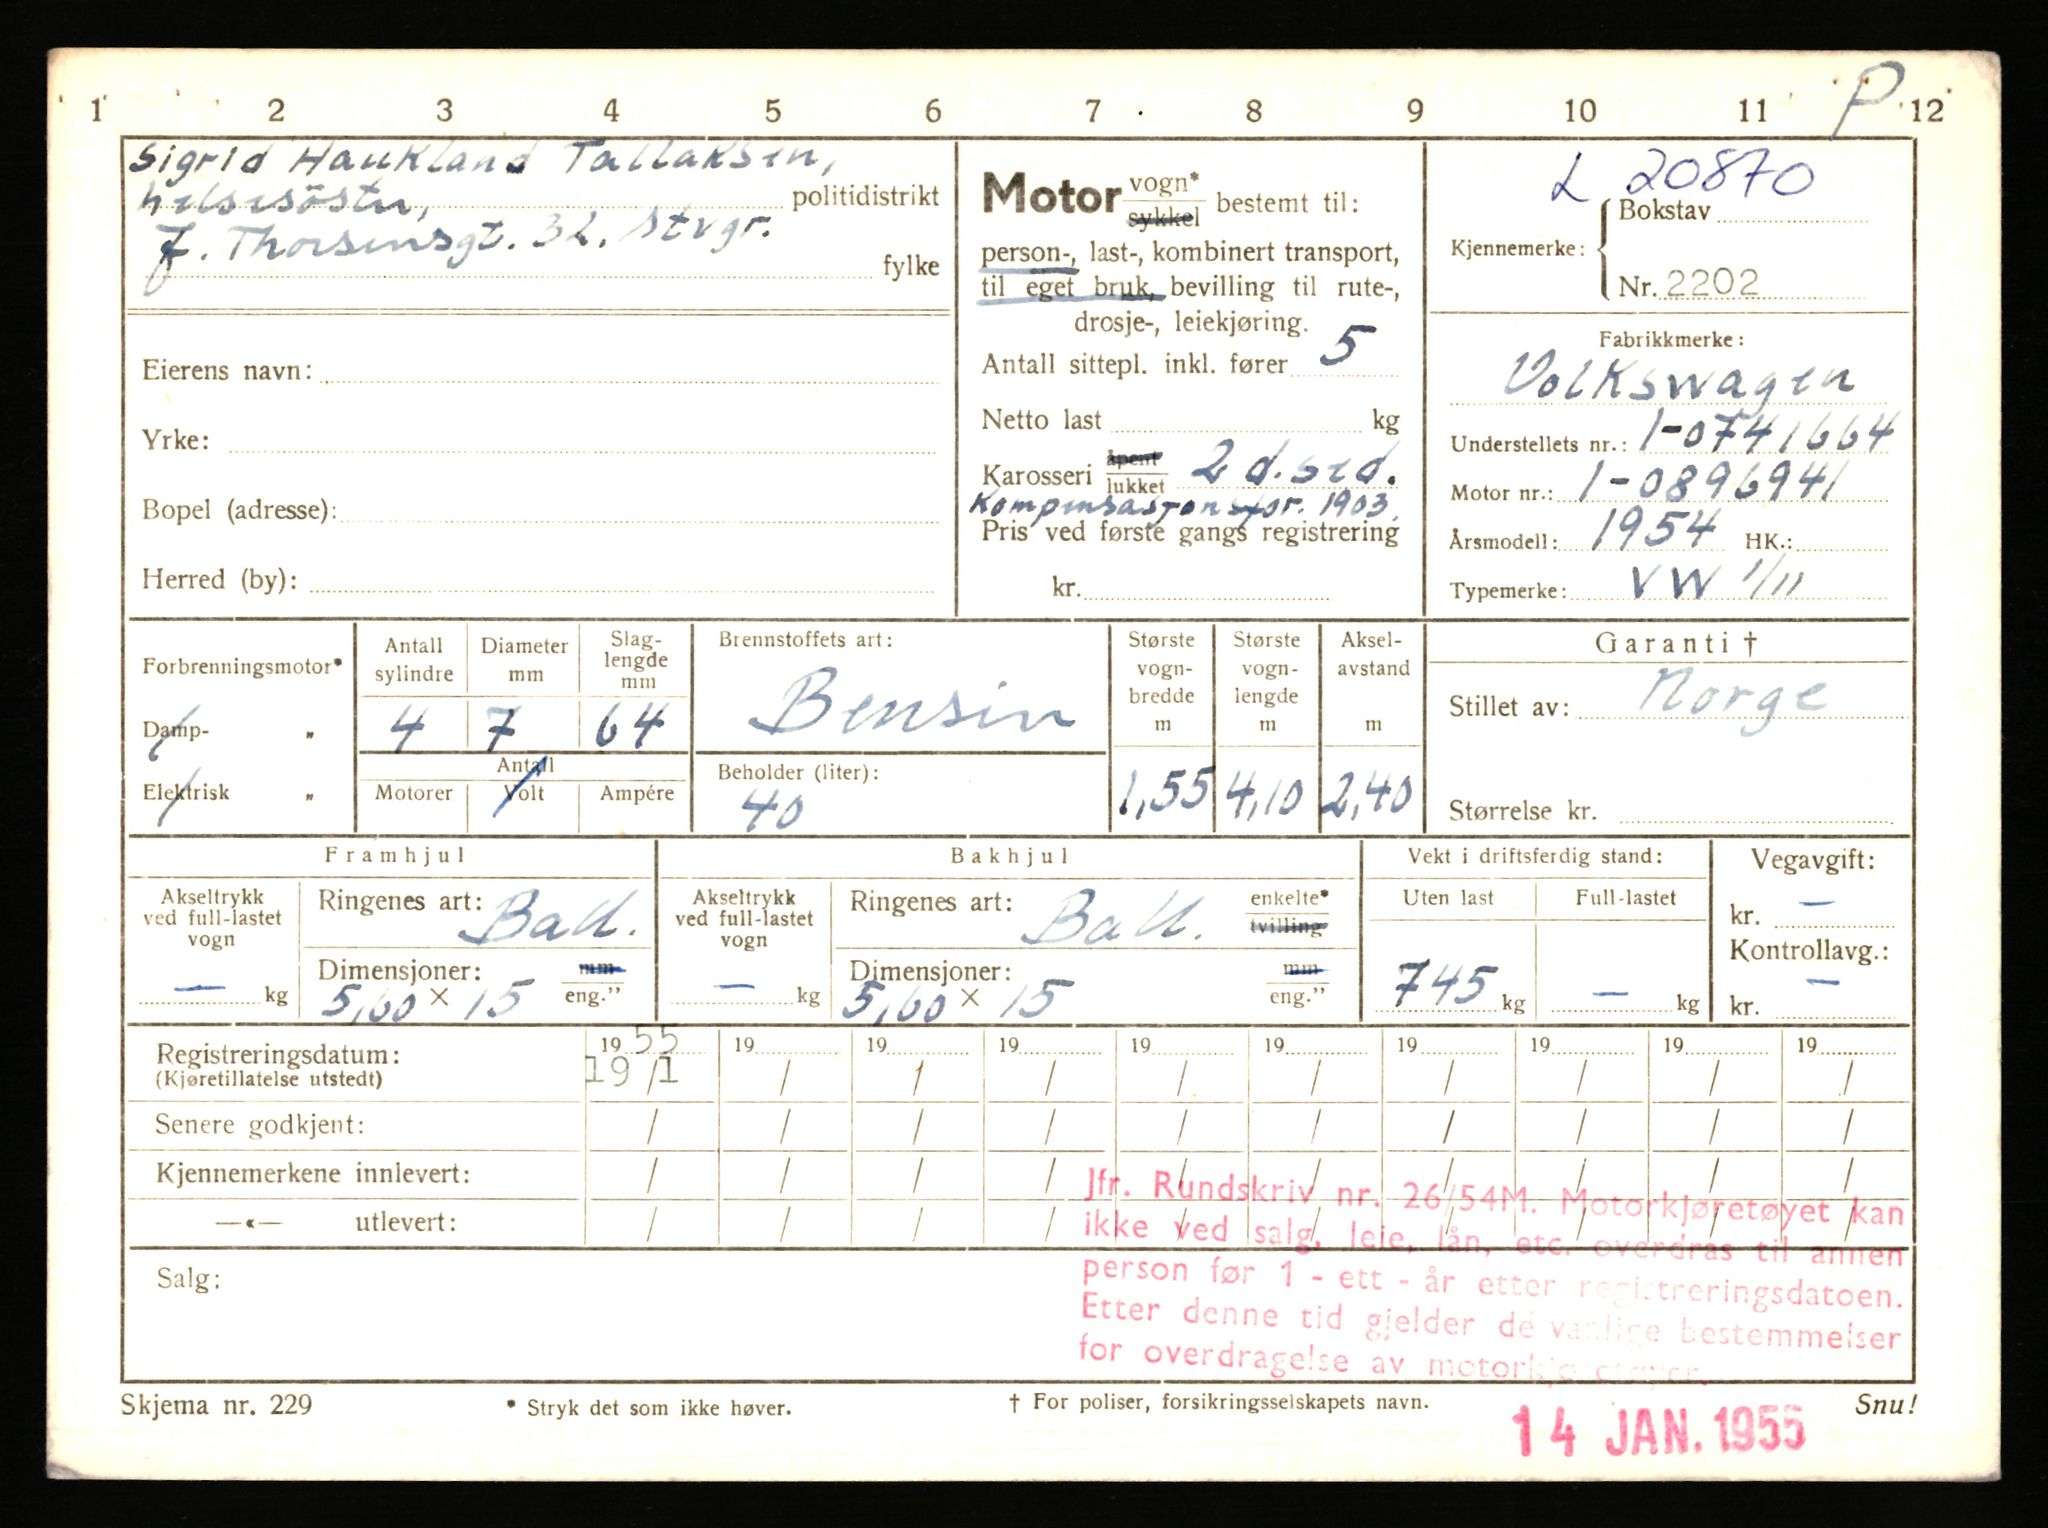 1 2 3 4 5 6 7 8 9 10 11 P 12
Sigrid Haukland Tallaksen,
helsesöster, politidistrikt
J. Thorsensgt. 32. Stvgr.
fylke
Eierens navn:
Yrke:
Bopel (adresse):
Herred (by):
Motor vogn* sykkel bestemt til:
person-, last-, kombinert transport,
til eget bruk, bevilling til rute-,
drosje-, leiekjøring.
Antall sittepl. inkl. fører 5
Netto last kg
Karosseri åpent lukket 2 d. sed.
Kompensasjonsfor. 1903.
Pris ved første gangs registrering
kr.
L 20870
Kjennemerke: Bokstav
Nr. 2202
Fabrikkmerke:
Volkswagen
Understellets nr.: 1-0741664
Motor nr.: 1-0896941
Årsmodell: 1954 HK.:
Typemerke: VW 1/11
Forbrenningsmotor*
Damp- "
Elektrisk "
Antall sylindre
4
Diameter mm
7
Slag-lengde mm
64
Antall
Motorer Volt Ampére
Brennstoffets art:
Bensin
Beholder (liter):
40
Største vogn-bredde m
1,55
Største vogn-lengde m
4,10
Aksel-avstand m
2,40
Garanti †
Stillet av: Norge
Størrelse kr.
Framhjul
Akseltrykk ved full-lastet vogn
— kg
Ringenes art: Ball.
Dimensjoner: mm
5,60 × 15 eng."
Bakhjul
Akseltrykk ved full-lastet vogn
— kg
Ringenes art: Ball. enkelte* tvilling
Dimensjoner: mm
5,60 × 15 eng."
Vekt i driftsferdig stand:
Uten last Full-lastet
745 kg — kg
Vegavgift:
kr. —
Kontrollavg.:
kr. —
Registreringsdatum: 19 55 19 19 19 19 19 19 19 19 19
(Kjøretillatelse utstedt) 19/1 / / / / / / / / /
Senere godkjent: / / / / / / / / / /
Kjennemerkene innlevert: / / / / / / / / / /
—«— utlevert: / / / / / / / / / /
Salg:
Jfr. Rundskriv nr. 26/54M. Motorkjøretøyet kan
ikke ved salg, leie, lån, etc. overdras til annen
person før 1 - ett - år etter registreringsdatoen.
Etter denne tid gjelder de vanlige bestemmelser
for overdragelse av motorkjøretøyer.
Skjema nr. 229 * Stryk det som ikke høver. † For poliser, forsikringsselskapets navn. Snu!
14 JAN. 1955